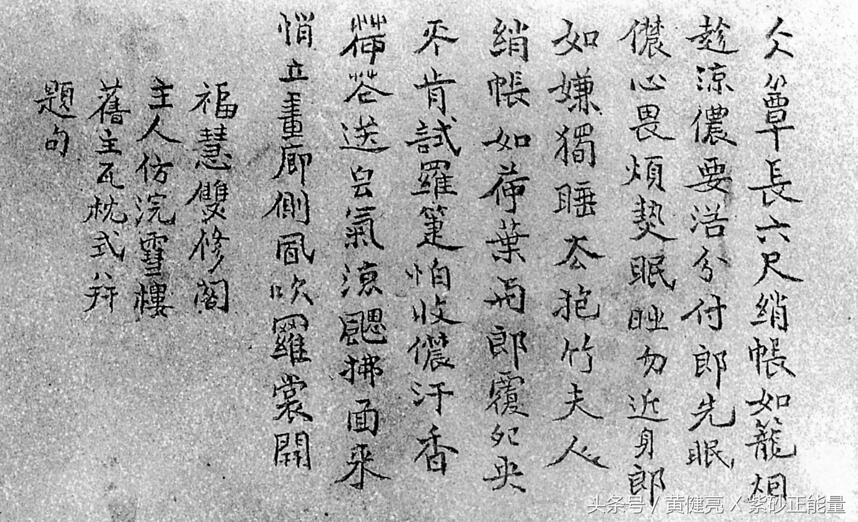 仌簟長六尺綃帳如籠烟
趁涼儂要浴分付郎先眠
儂心畏煩熱眠睡勿近身郎
如嫌獨睡厺抱竹夫人
綃帳如荷葉兩郎覆夗央
不肯試羅箑怕收儂汗香
菡萏送皀氣涼颸拂面來
悄立畫廊側風吹羅裳開
福慧雙修閣
主人仿浣雪樓
舊主瓦枕式并
題句
头条号 / 黄健亮 X 紫砂正能量